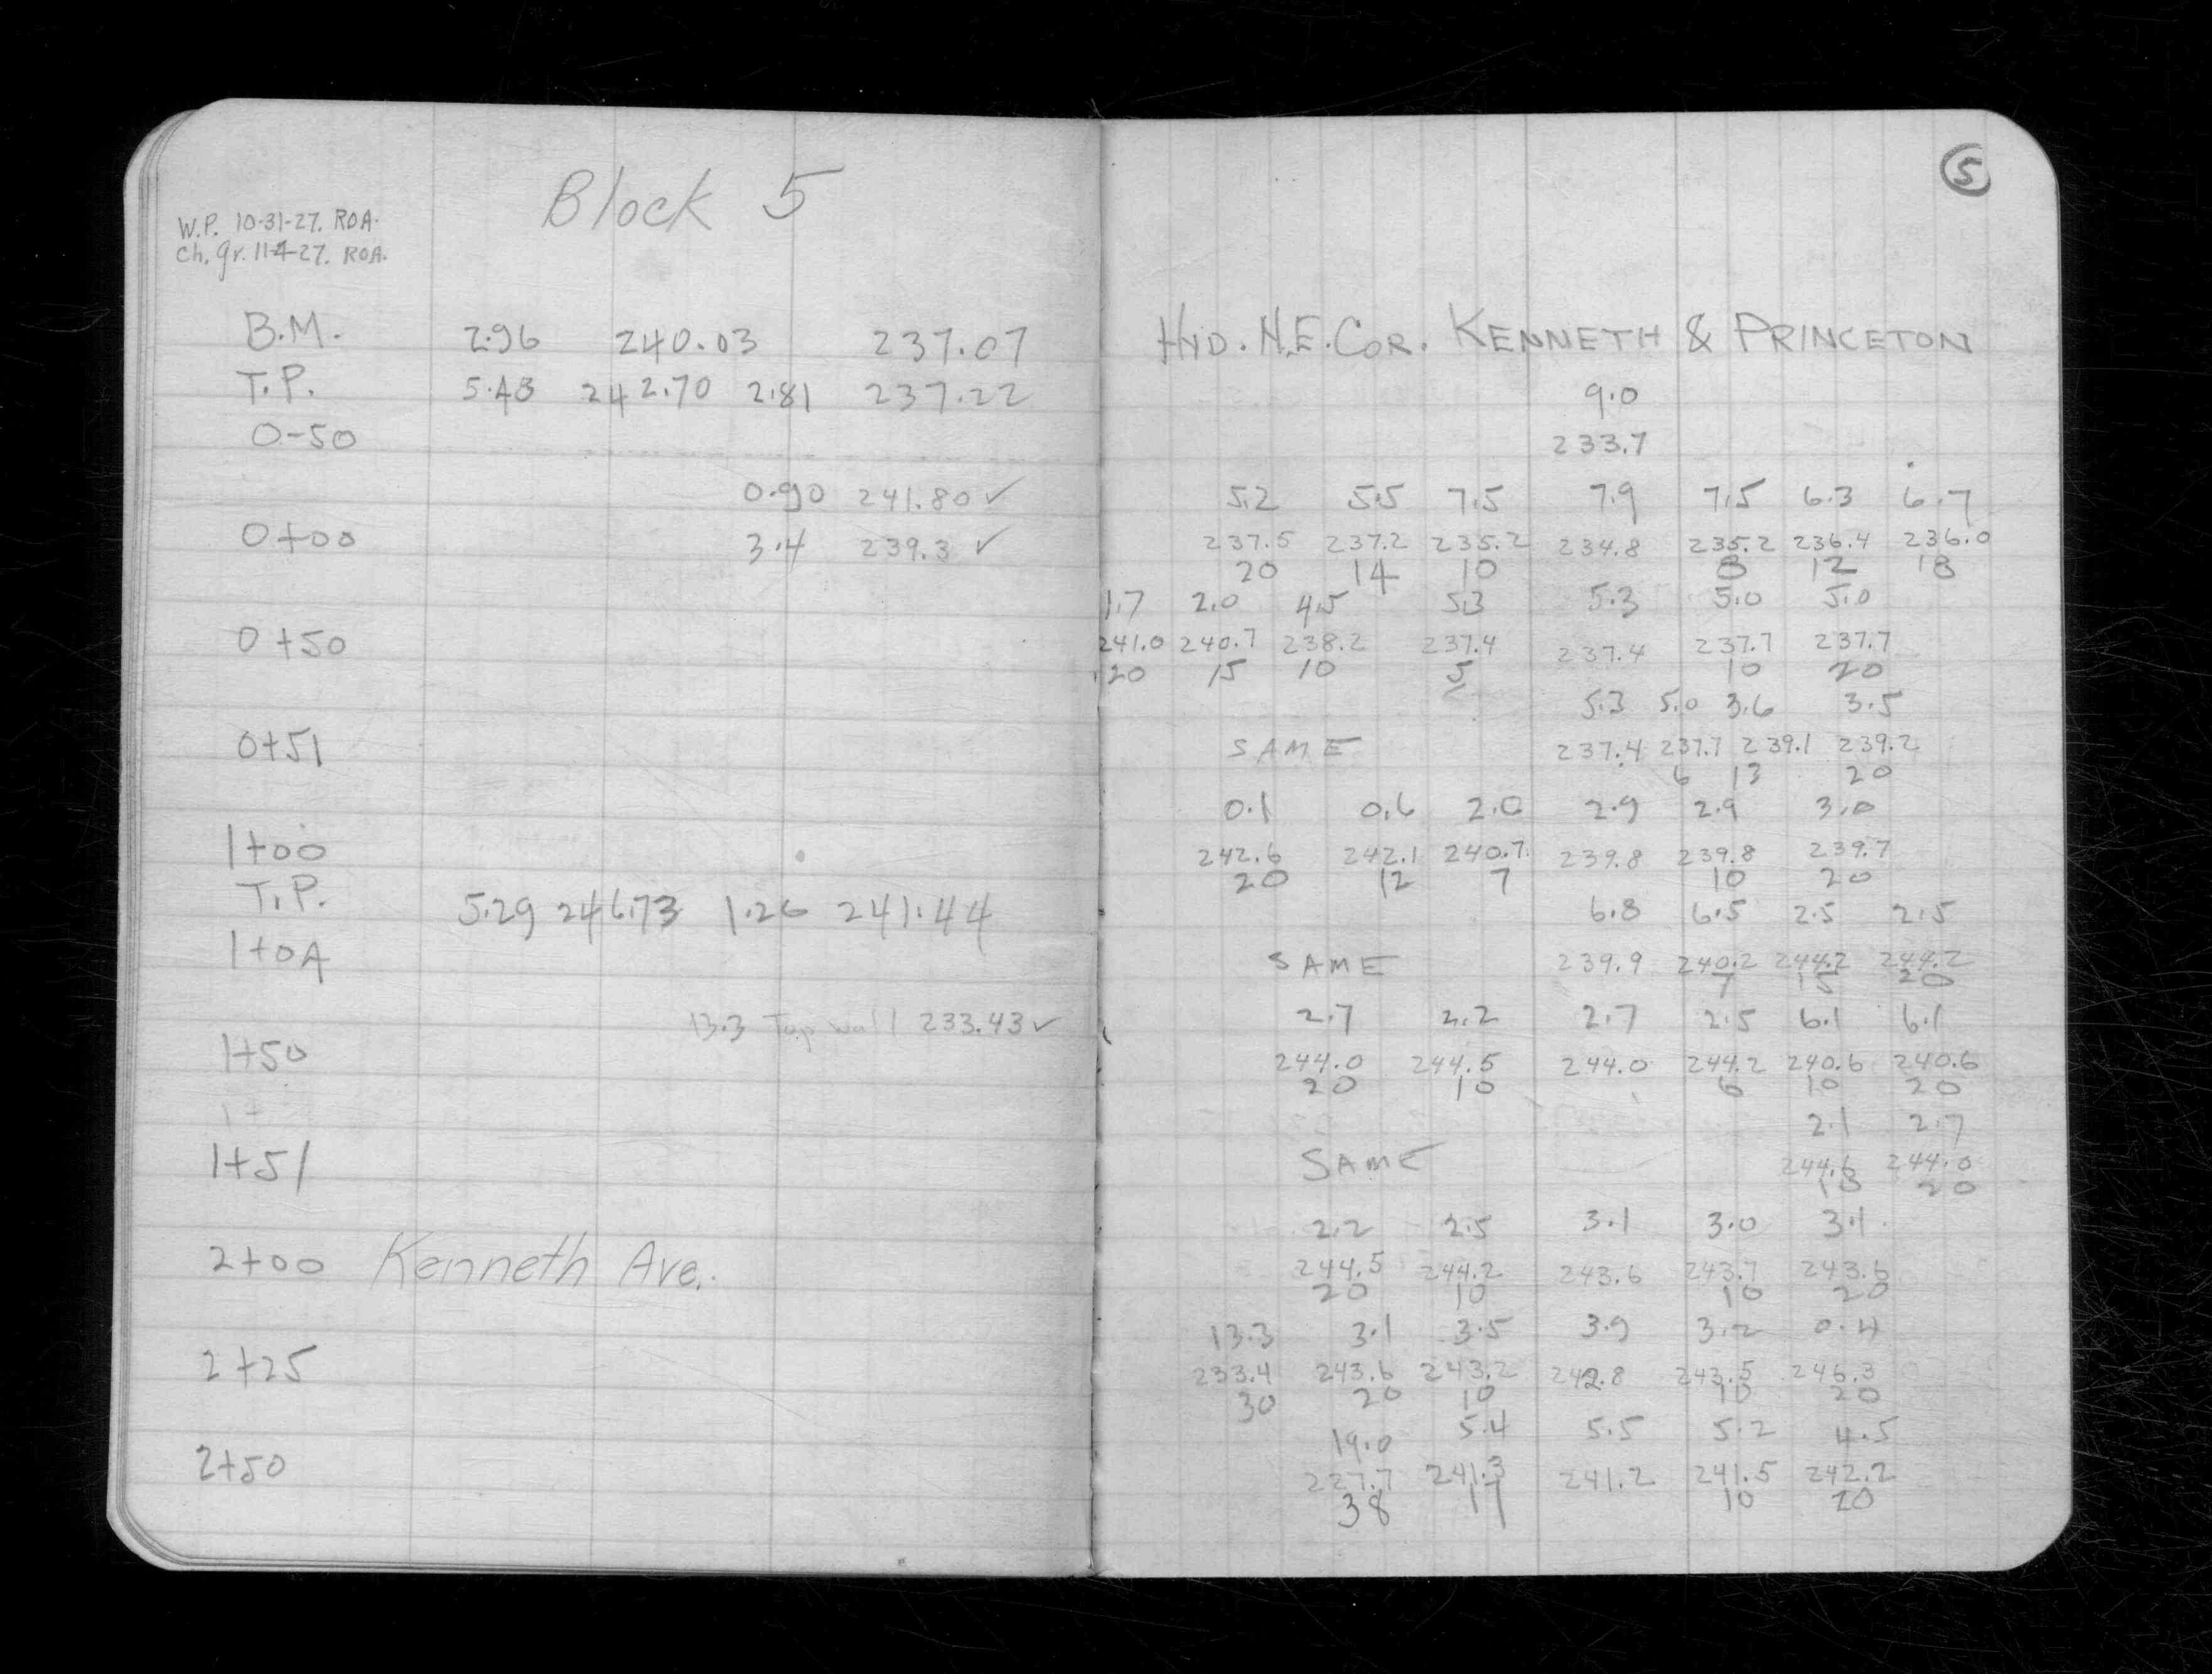 Block 5
W.P. 10-31-27. ROA.
Ch. gr. 11-4-27. ROA.
B.M. 2.96 240.03 237.07
T.P. 5.48 242.70 2.81 237.22
0-50
0.90 241.80 ✓
0+00 3.4 239.3 ✓
0+50
0+51
1+00
T.P. 5.29 246.73 1.26 241.44
1+04
13.3 Top wall 233.43 ✓
1+50
1+
1+51
2+00 Kenneth Ave.
2+25
2+50
5
HYD. N.E. COR. KENNETH & PRINCETON
9.0
233.7
5.2 5.5 7.5 7.9 7.5 6.3 6.7
237.5 237.2 235.2 234.8 235.2 236.4 236.0
20 14 10 8 12 18
1.7 2.0 4.5 5.3 5.3 5.0 5.0
241.0 240.7 238.2 237.4 237.4 237.7 237.7
20 15 10 5 10 20
5.3 5.0 3.6 3.5
SAME 237.4 237.7 239.1 239.2
6 13 20
0.1 0.6 2.0 2.9 2.9 3.0
242.6 242.1 240.7 239.8 239.8 239.7
20 12 7 10 20
6.8 6.5 2.5 2.5
SAME 239.9 240.2 244.2 244.2
7 15 20
2.7 2.2 2.7 2.5 6.1 6.1
244.0 244.5 244.0 244.2 240.6 240.6
20 10 6 10 20
2.1 2.7
SAME 244.6 244.0
10 20
2.2 2.5 3.1 3.0 3.1
244.5 244.2 243.6 243.7 243.6
20 10 10 20
13.3 3.1 3.5 3.9 3.2 0.4
233.4 243.6 243.2 242.8 243.5 246.3
30 20 10 10 20
19.0 5.4 5.5 5.2 4.5
227.7 241.3 241.2 241.5 242.2
38 11 10 20